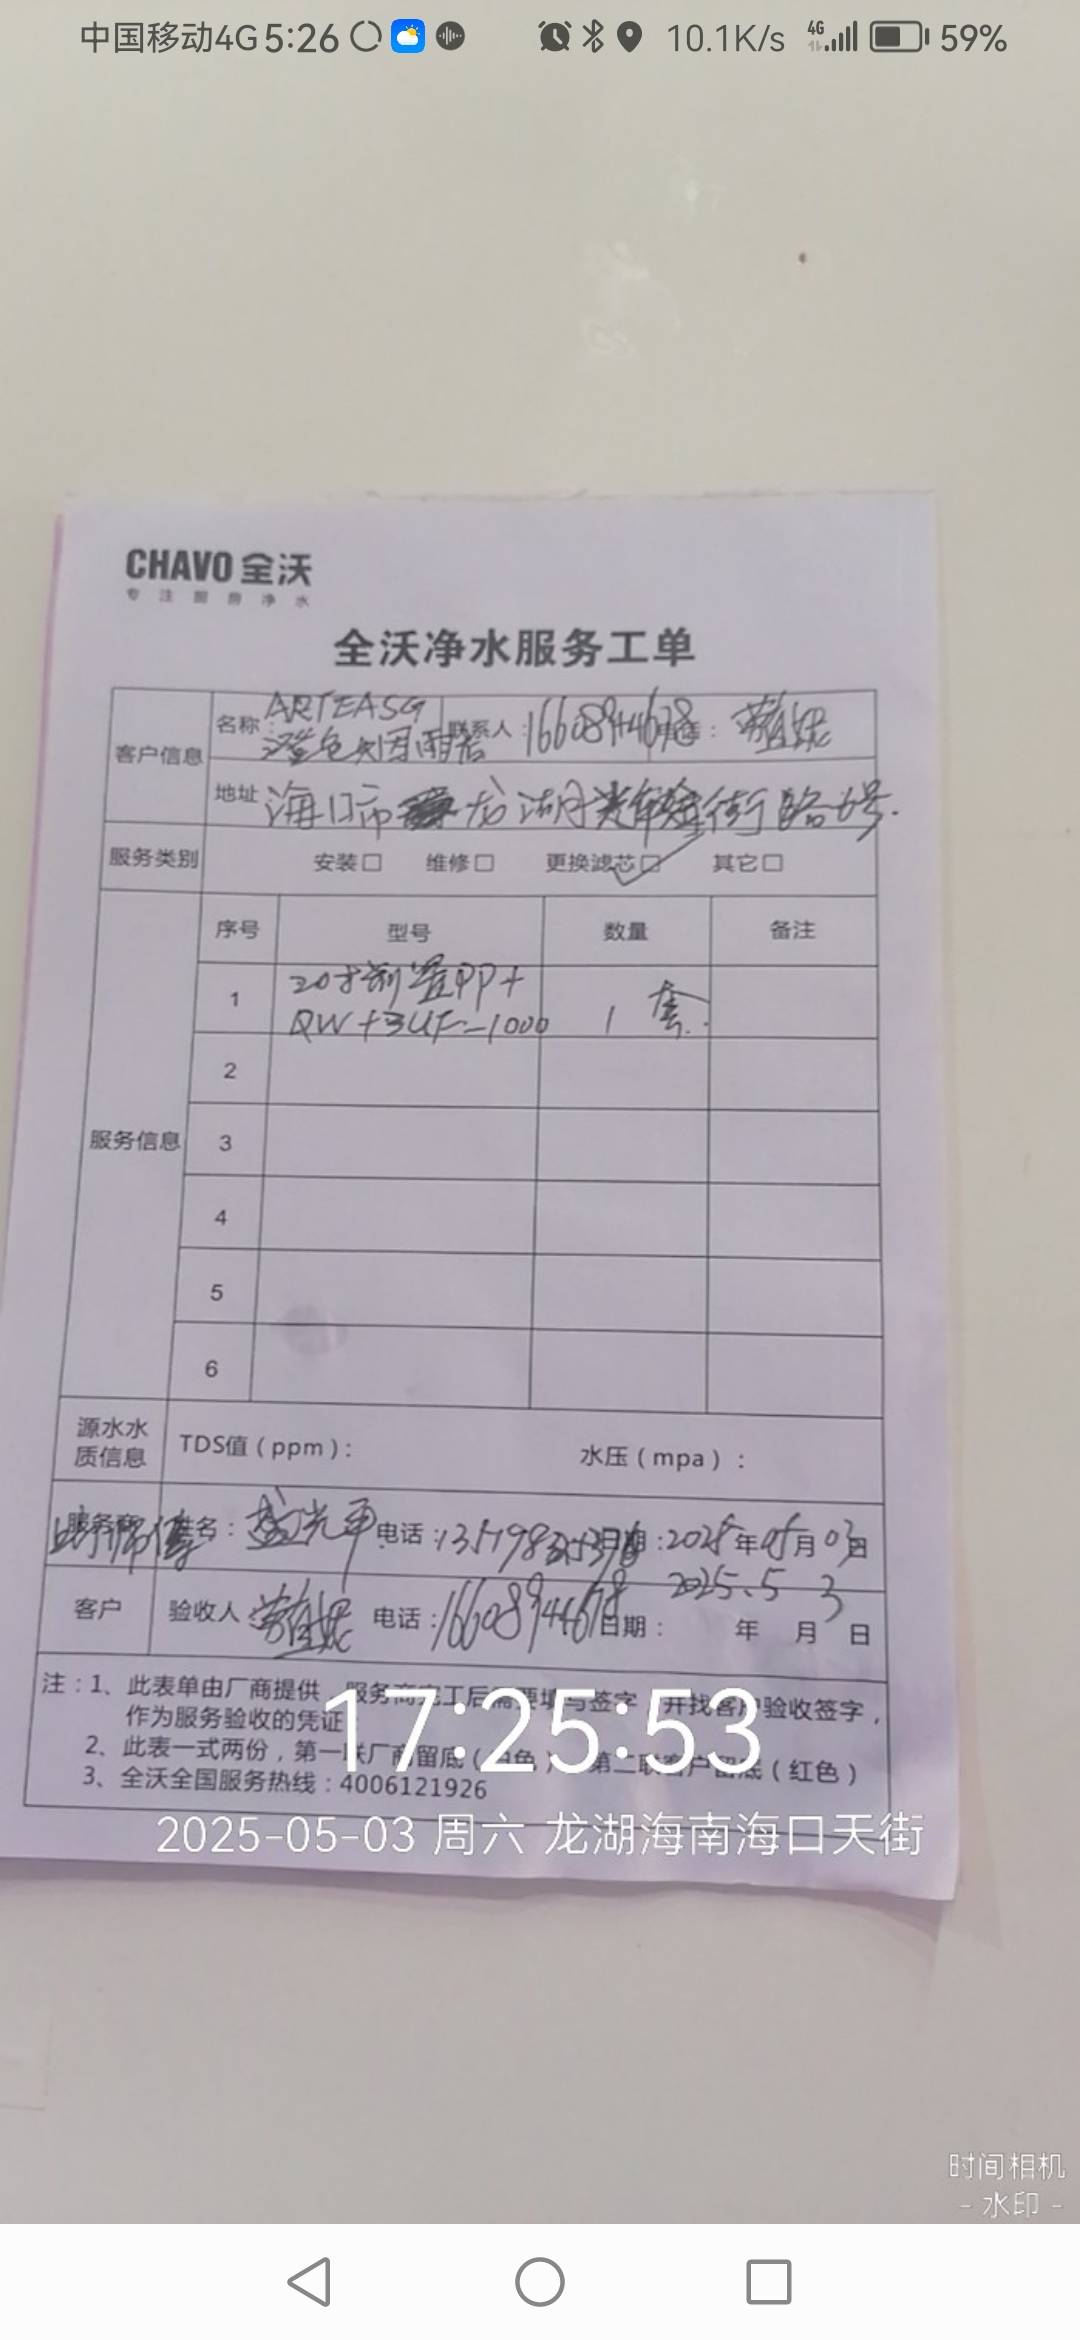 中国移动4G 5:26 10.1K/s 4G 59%
CHAVO 全沃
专注厨房净水
全沃净水服务工单
客户信息 名称: ARTEASG 联系人: 16608944678 电话:
地址 海口市 龙湖 天街 路6号.
服务类别 安装□ 维修□ 更换滤芯□ 其它□
服务信息 序号 型号 数量 备注
1 20寸前置PP+ QW+3UF-1000 1套.
2
3
4
5
6
源水水质信息 TDS值(ppm): 水压(mpa):
服务商 姓名: 盛光平 电话: 日期: 2025年05月03日
2025.5 3
客户 验收人: 电话: 16608944678 日期: 年 月 日
注:1、此表单由厂商提供,服务商完工后需要填写签字,并找客户验收签字,
作为服务验收的凭证
2、此表一式两份,第一联厂商留底(白色)第二联客户留底(红色)
3、全沃全国服务热线:4006121926
17:25:53
2025-05-03 周六 龙湖海南海口天街
时间相机
- 水印 -